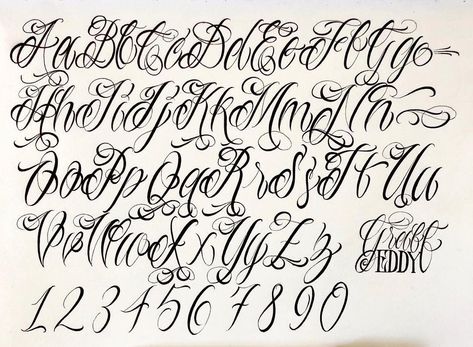 Aa Bb Cc Dd Ee Ff Gg
Hh Ii Jj Kk Ll Mm Nn
Oo Pp Qq Rr Ss Tt Uu
Vv Ww Xx Yy Zz
1 2 3 4 5 6 7 8 9 0
EDDY